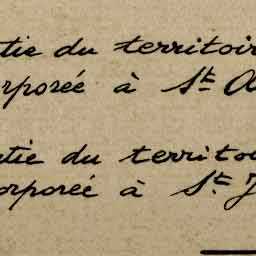 tie du territoir
rporée à St A
rtie du territoi
orporée à St. J